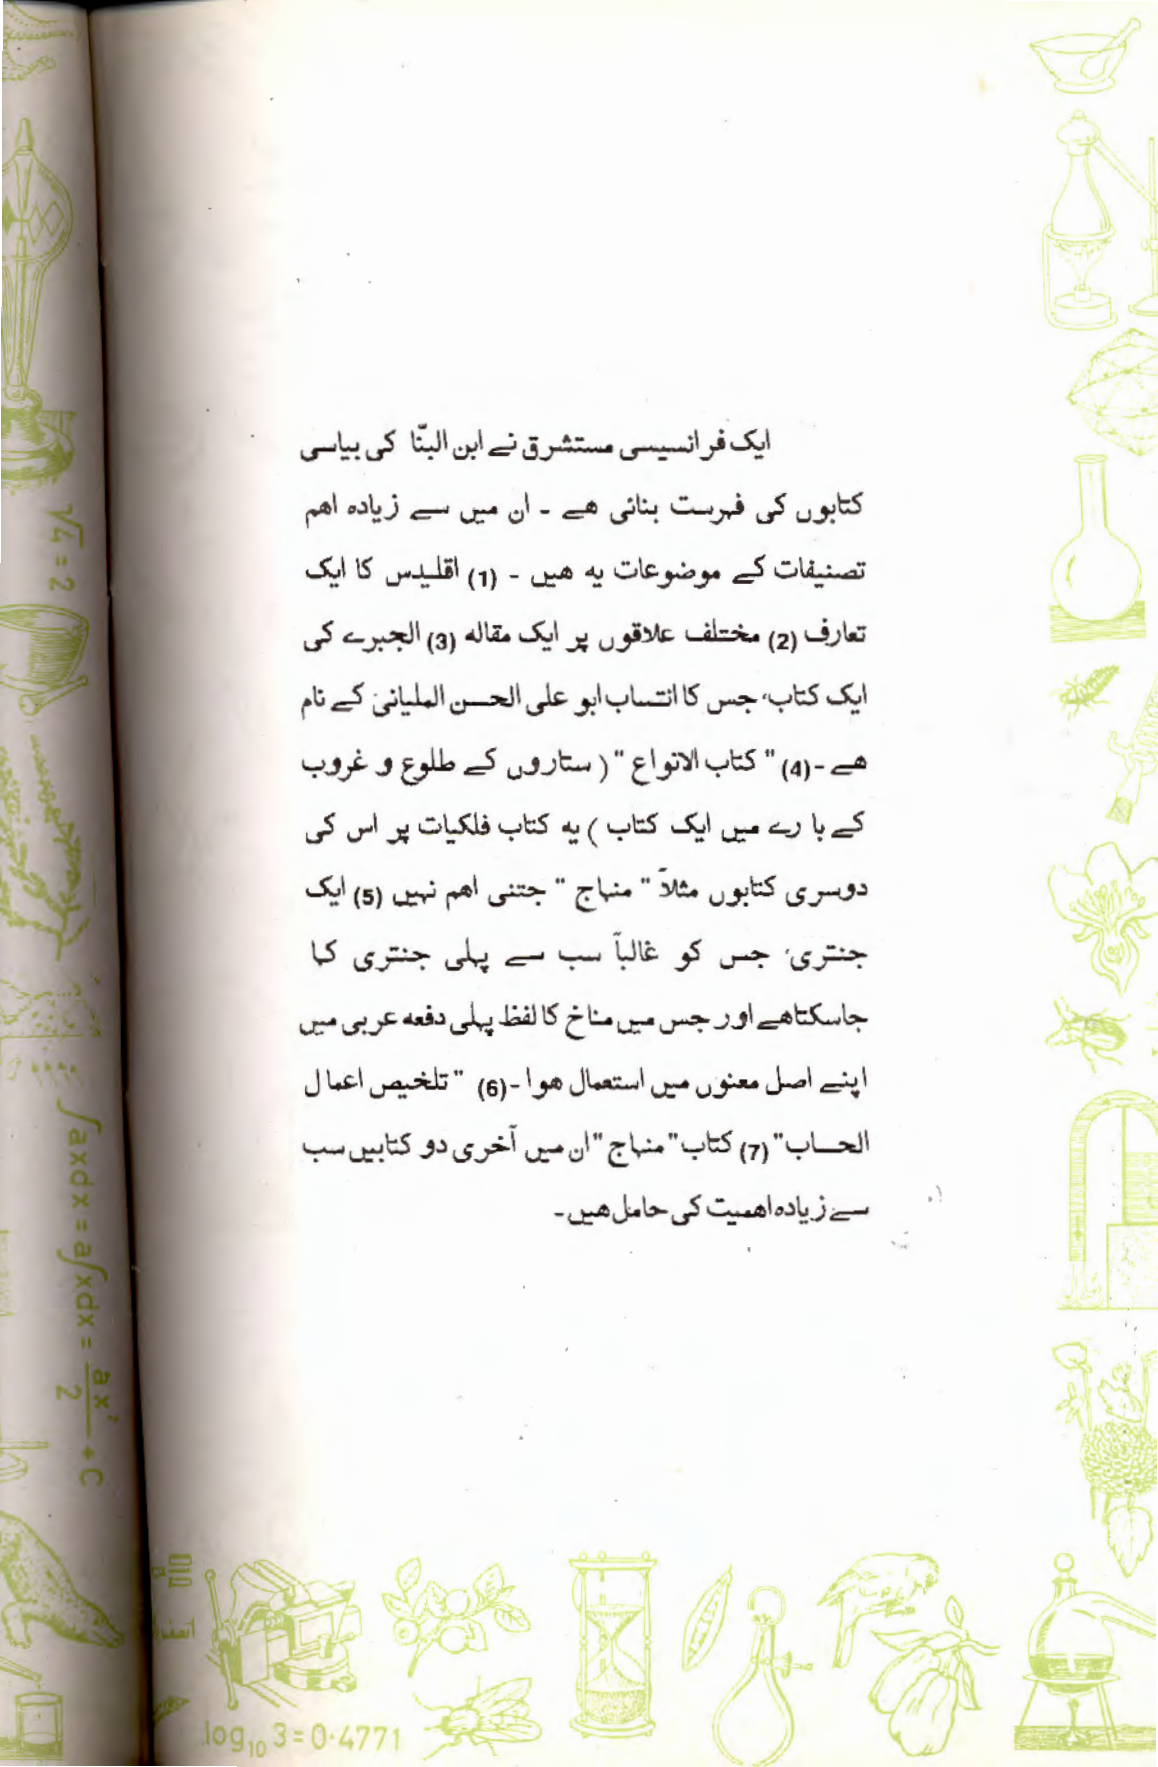 ایک فرانسیسی مستشرق نے ابن البنّا کی بیاسی
کتابوں کی فہرست بنائی ھے ۔ ان میں سے زیادہ اھم
تصنیفات کے موضوعات یہ ھیں ۔ (1) اقلیدس کا ایک
تعارف (2) مختلف علاقوں پر ایک مقالہ (3) الجبرے کی
ایک کتاب، جس کا انتساب ابو علی الحسن الملیانی کے نام
ھے ۔(4) " کتاب الانواع " ( ستاروں کے طلوع و غروب
کے بارے میں ایک کتاب ) یہ کتاب فلکیات پر اس کی
دوسری کتابوں مثلاً " منہاج " جتنی اھم نہیں (5) ایک
جنتری، جس کو غالباً سب سے پہلی جنتری کہا
جاسکتاھے اور جس میں مناخ کا لفظ پہلی دفعہ عربی میں
اپنے اصل معنوں میں استعمال ھوا ۔(6) " تلخیص اعمال
الحساب" (7) کتاب "منہاج" ان میں آخری دو کتابیں سب
سے زیادہ اھمیت کی حامل ھیں۔
√4 = 2
∫axdx = a∫xdx = ax²/2 + C
log₁₀ 3 = 0·4771